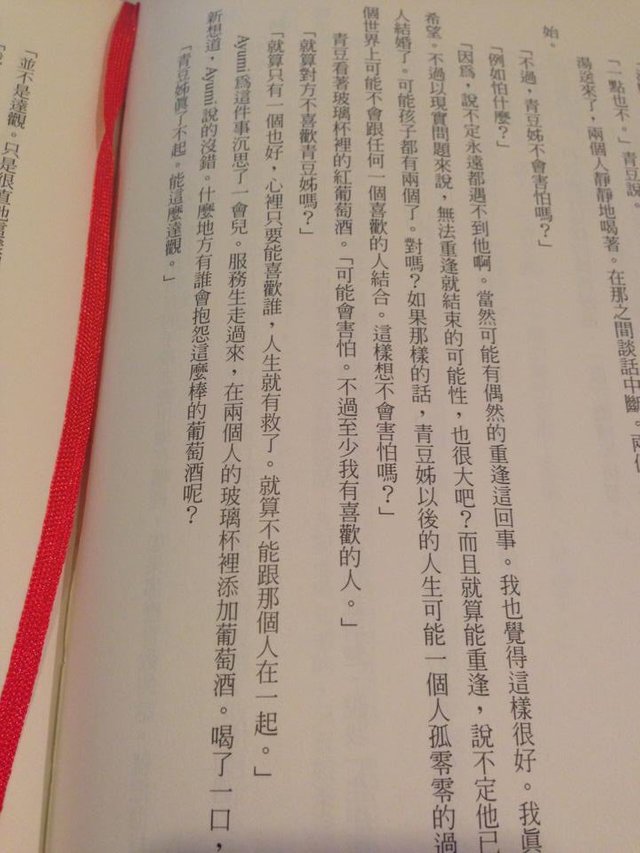 湯送來了，兩個人靜靜地喝著。在那之間談話中斷。兩
「一點也不。」青豆說。
始。
「不過，青豆姊不會害怕嗎？」
「例如怕什麼？」
「因為，說不定永遠都遇不到他啊。當然可能有偶然的重逢這回事。我也覺得這樣很好。我真
希望。不過以現實問題來說，無法重逢就結束的可能性，也很大吧？而且就算能重逢，說不定他已
人結婚了。可能孩子都有兩個了。對嗎？如果那樣的話，青豆姊以後的人生可能一個人孤零零的過
個世界上可能不會跟任何一個喜歡的人結合。這樣想不會害怕嗎？」
青豆看著玻璃杯裡的紅葡萄酒。「可能會害怕。不過至少我有喜歡的人。」
「就算對方不喜歡青豆姊嗎？」
「就算只有一個也好，心裡只要能喜歡誰，人生就有救了。就算不能跟那個人在一起。」
Ayumi為這件事沉思了一會兒。服務生走過來，在兩個人的玻璃杯裡添加葡萄酒。喝了一口，
新想道，Ayumi說的沒錯。什麼地方有誰會抱怨這麼棒的葡萄酒呢？
「青豆姊真了不起。能這麼達觀。」
「並不是達觀。只是很直